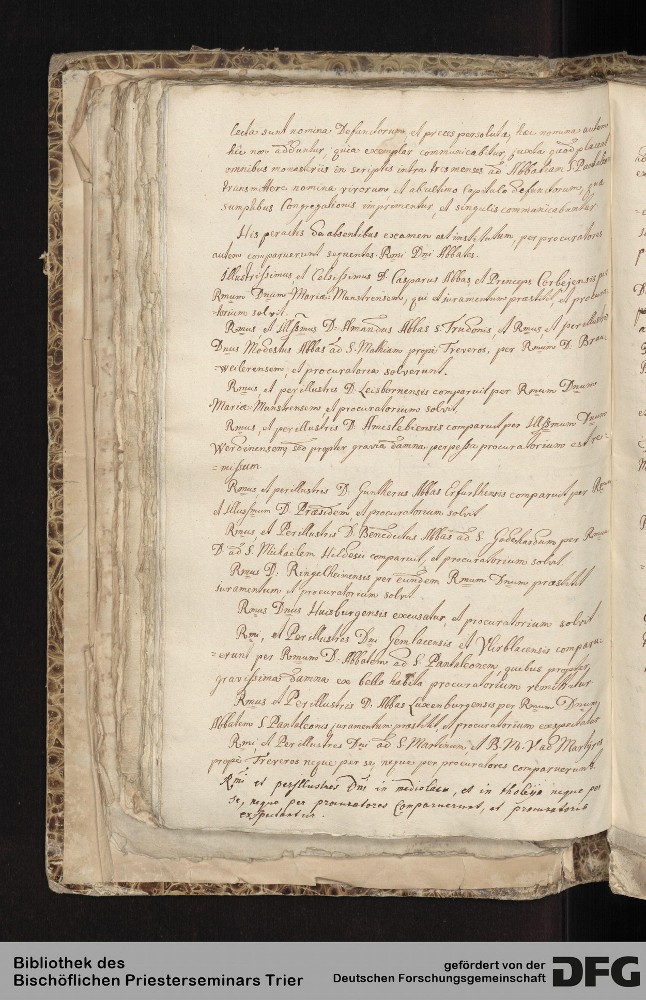 lecta sunt nomina Defunctorum, et preces persolutæ, hæc nomina autem
hic non adduntur, quia exemplar communicabitur, juxta quod placuit
omnibus monasteriis in scriptis intra tres menses ad Abbatiam S. Pantaleonis
transmittere nomina virorum et ab ultimo Capitulo defunctorum, quæ
sumptibus Congregationis imprimentur et singulis communicabuntur
His peractis de absentibus examen est institutum, per procuratores
autem comparuerunt sequentes Rmi Dni Abbates.
Illustrissimus et Celsissimus D. Casparus Abbas et Princeps Corbejensis per
Rmum Dnum Mariæ Munstrensem, qui et juramentum præstitit, et procura-
=torium solvit.
Rmus et Illssmus D. Amandus Abbas S. Trudonis, et Rmus et perillustris
Dnus Modestus Abbas ad S. Mathiam prope Treveros, per Rmum D. Brau-
=weilerensem, et procuratoria solverunt.
Rmus et perillustris D. Leisbornensis comparuit per Rmum Dnum
Mariæ Munstrensem, et procuratorium solvit.
Rmus, et perillustris D. Ameslebiensis comparuit per Illssmum Dnum
Werdenensem, sed propter gravia damna perpessa procuratorium est re-
=missum.
Rmus et perillustris D. Guntherus Abbas Erfurthensis comparuit per Rmum
et Illussmum D. Præsidem, et procuratorium solvit
Rmus, et Perillustris D. Benedictus Abbas ad S. Godehardum per Rmum
D. ad S. Michaelem Hildesii comparuit, et procuratorium solvit.
Rmus D. Ringelheimensis per eundem Rmum Dnum præstitit
juramentum, et procuratorium solvit.
Rmus Dnus Huisburgensis excusatur, et procuratorium solvit
Rmi, et Perillustres Dni Gemlacensis et Vlierblacensis comparu-
=erunt per Rmum D. Abbatem ad S. Pantaleonem, quibus propter
gravissima damna ex bello habita procuratorium remittitur
Rmus et Perillustris D. Abbas Luxenburgensis per Rmum Dnum
Abbatem S. Pantaleonis juramentum præstitit, et procuratorium exspectatur
Rmi, et Perillustres Dni ad S. Martinum et B. M. V. ad Martyres
prope Treveros neque per se, neque per procuratores comparuerunt.
Rmi et perillustres Dni in mediolacu, et in tholeija neque per
se, neque per procuratores Comparuerunt, et procuratoria
exspectantur.
Bibliothek des
Bischöflichen Priesterseminars Trier
gefördert von der
Deutschen Forschungsgemeinschaft
DFG